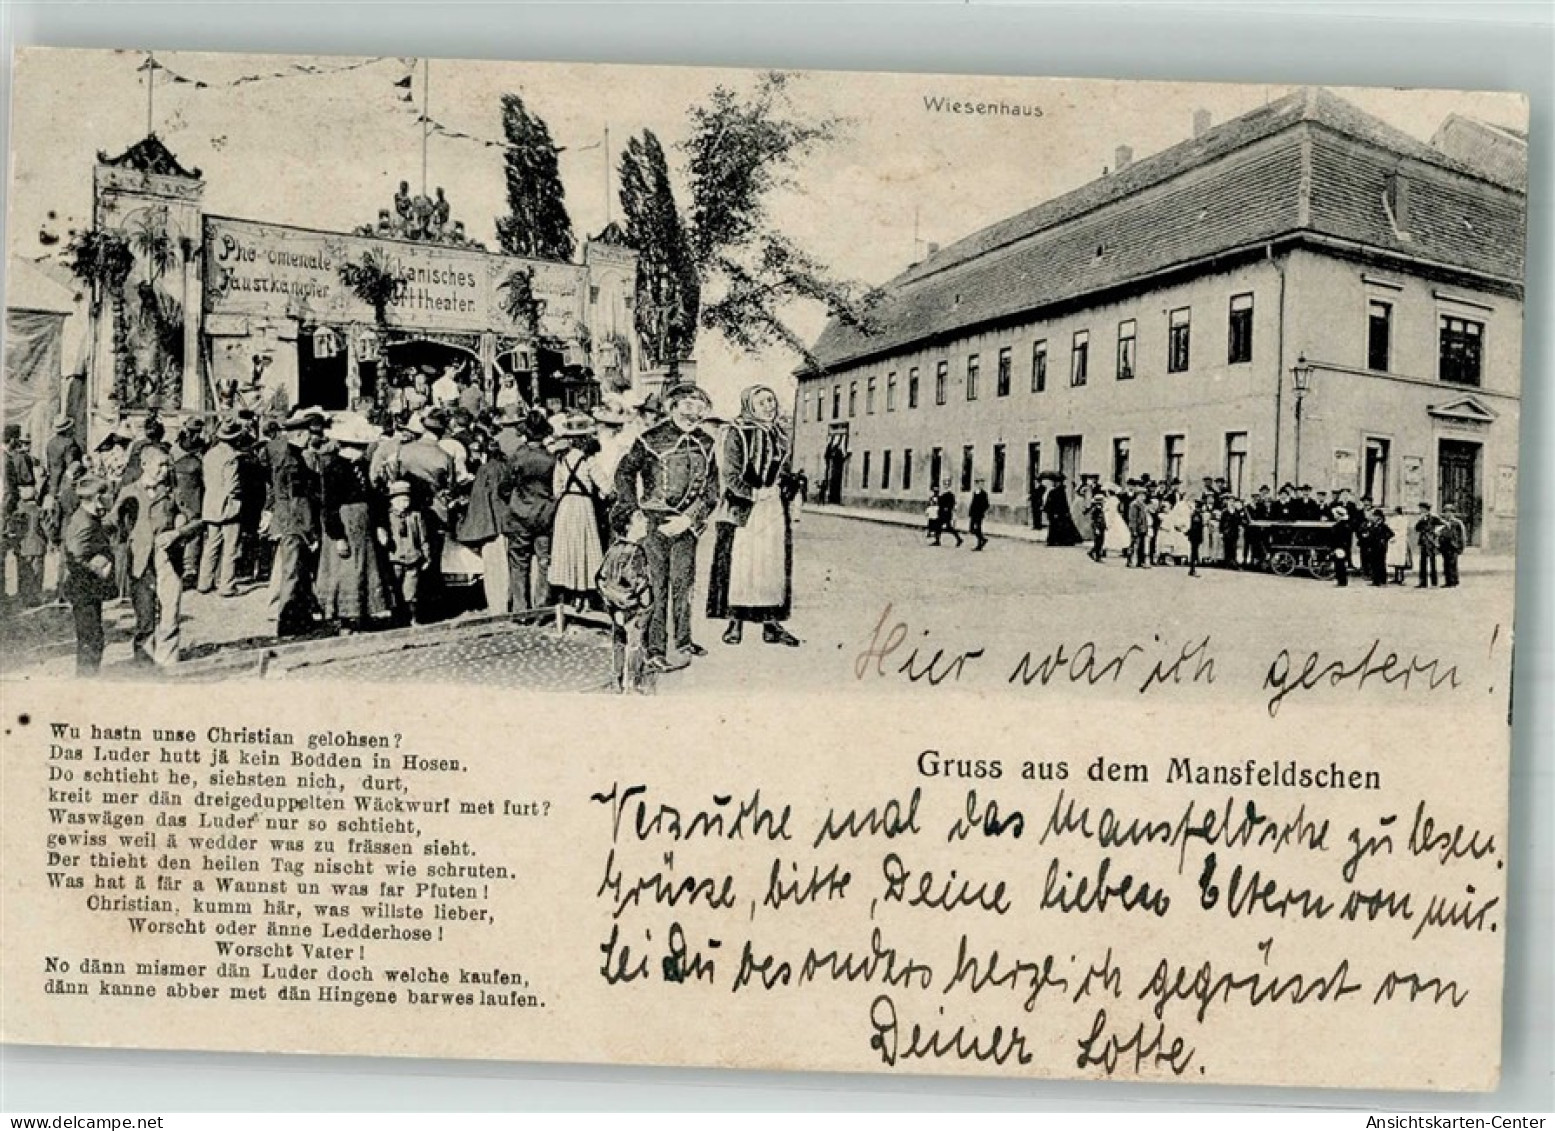 Wiesenhaus
Faustkämpfer
kanisches
Hier war ich gestern!
Wu hastn unse Christian gelohsen?
Das Luder hutt jä kein Bodden in Hosen.
Do schtieht he, siehsten nich, durt,
kreit mer dän dreigeduppelten Wäckwurf met furt?
Waswägen das Luder nur so schtieht,
gewiss weil ä wedder was zu frässen sieht.
Der thieht den heilen Tag nischt wie schruten.
Was hat ä fär a Wannst un was far Pfuten!
Christian, kumm här, was willste lieber,
Worscht oder änne Ledderhose!
Worscht Vater!
No dänn mismer dän Luder doch welche kaufen,
dänn kanne abber met dän Hingene barwes laufen.
Gruss aus dem Mansfeldschen
Versuche mal das Mansfeldsche zu lesen.
Grüsse, bitte, Deine lieben Eltern von mir.
Sei Du besonders herzlich gegrüsst von
Deiner Lotte.
Ansichtskarten-Center